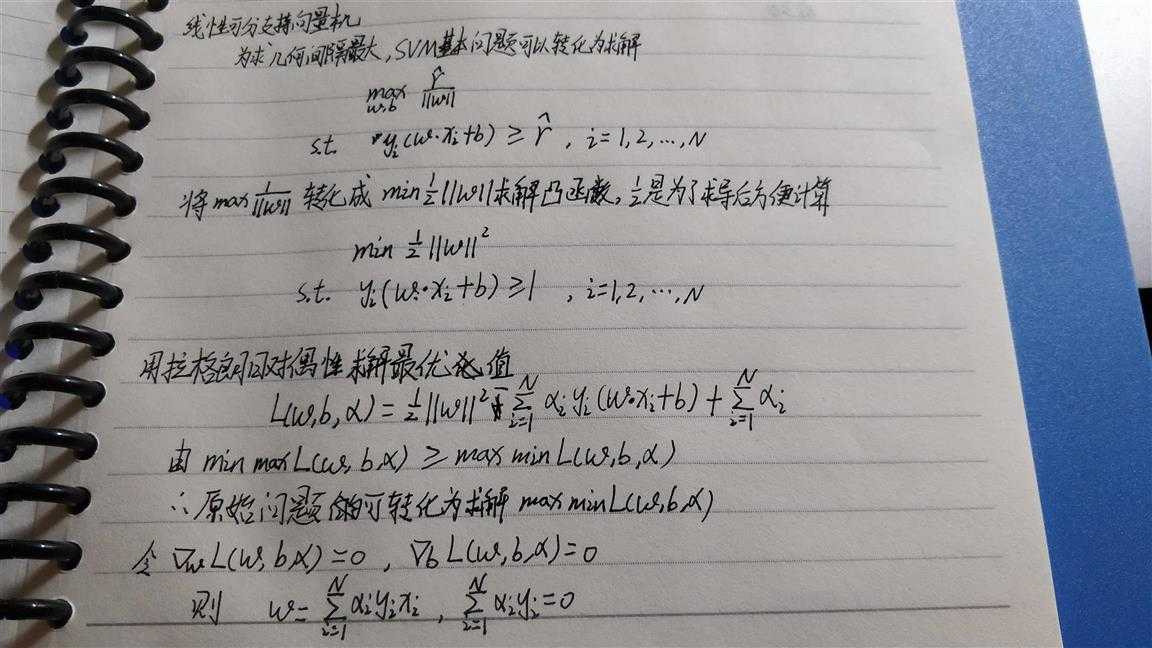 线性可分支持向量机
为求几何间隔最大,SVM基本问题可以转化为求解
max_{w,b} r̂/||w||
s.t. y_i(w·x_i+b) ≥ r̂ , i=1,2,...,N
将max 1/||w|| 转化成 min ½||w||求解凸函数,½是为了求导后方便计算
min ½||w||²
s.t. y_i(w·x_i+b) ≥1 , i=1,2,...,N
用拉格朗日对偶性求解最优值
L(w,b,α) = ½||w||² - ∑_{i=1}^{N} α_i y_i (w·x_i+b) + ∑_{i=1}^{N} α_i
由 min max L(w,b,α) ≥ max min L(w,b,α)
∴原始问题可转化为求解 max min L(w,b,α)
令 ∇_w L(w,b,α)=0 , ∇_b L(w,b,α)=0
则 w= ∑_{i=1}^{N} α_i y_i x_i , ∑_{i=1}^{N} α_i y_i=0